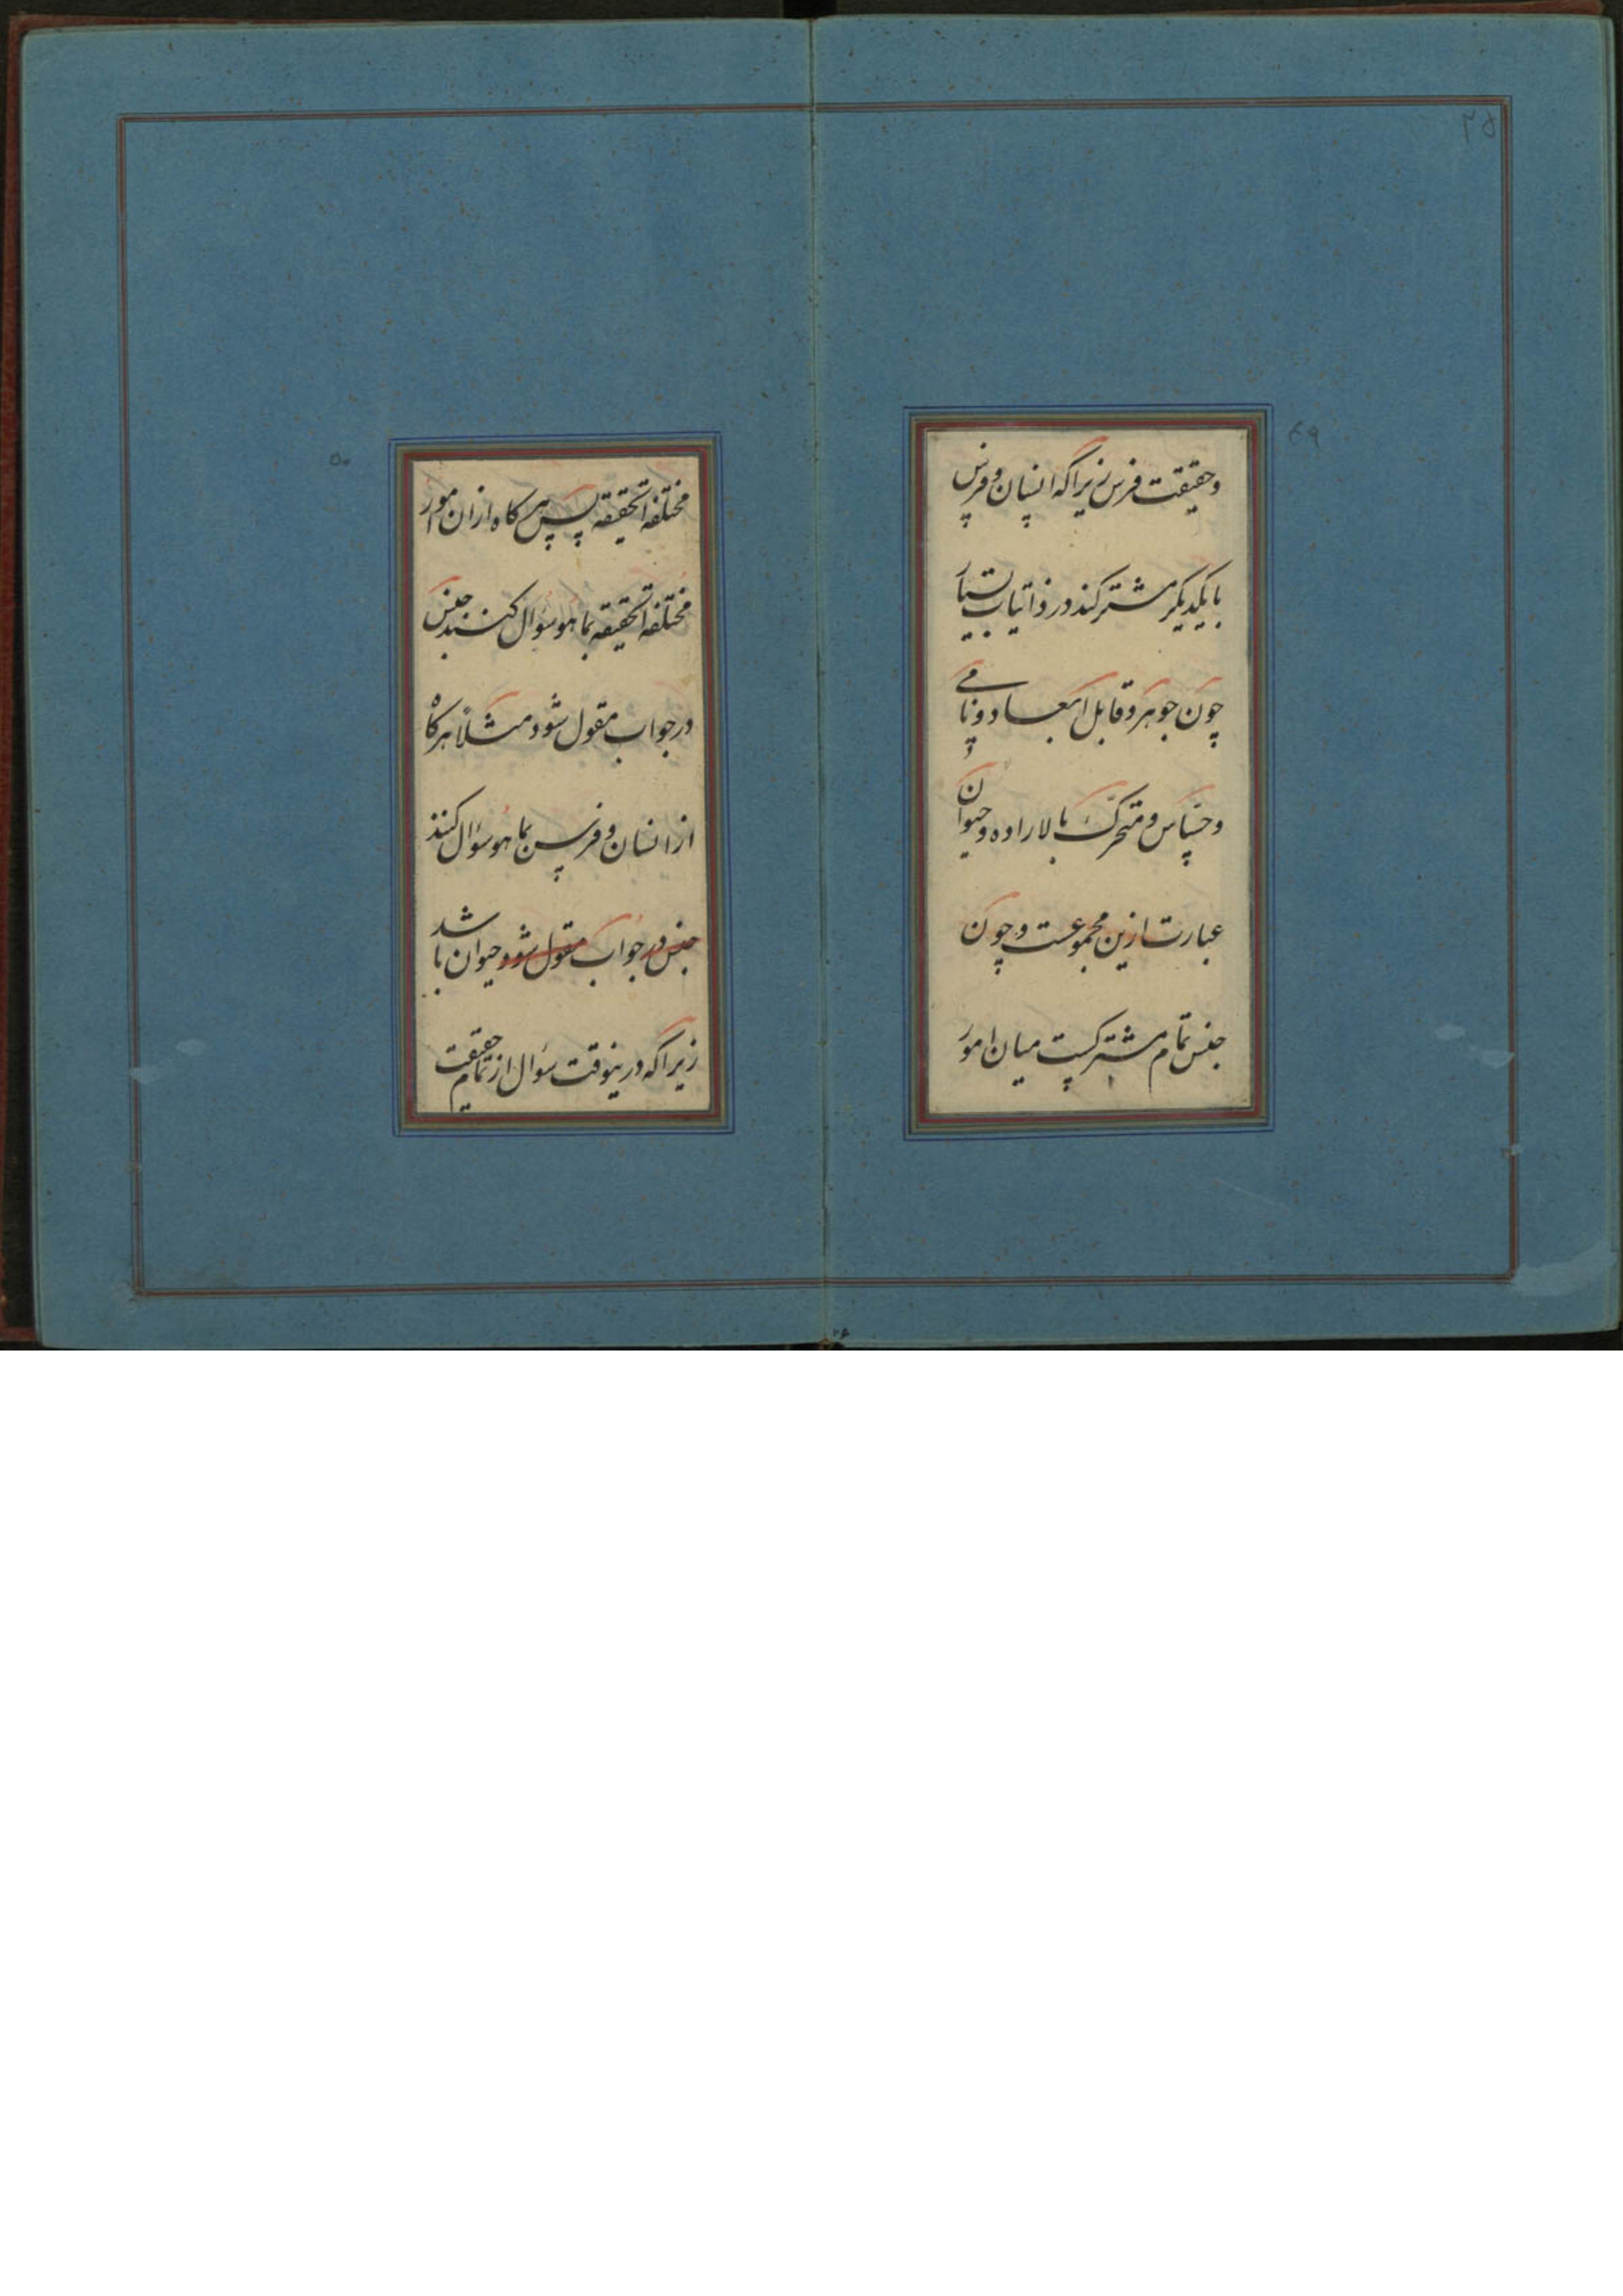 ۴۹
وحقیقت فرس زیراکه انسان وفرس
بایکدیکر مشترکند در ذاتیات بسیار
چون جوهر و قابل ابعاد و نامی
و حساس و متحرک بالاراده و حیوان
عبارت ازین مجموعست و چون
جنس تمام مشترکست میان امور
۵۰
مختلفة الحقیقه پس هرکاه ازان امور
مختلفة الحقیقه بما هو سؤال کنند جنس
در جواب مقول شود مثلاً هرکاه
از انسان و فرس بما هو سؤال کنند
جنس در جواب مقول شود حیوان باشد
زیراکه درینوقت سؤال از تمام حقیقت